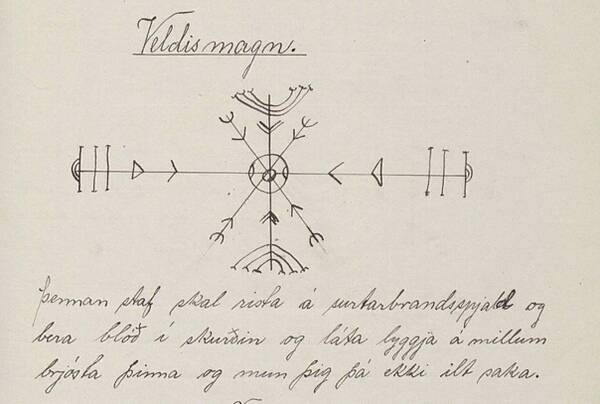 Veldismagn.
Þennan staf skal rista á surtarbrandsspjald og
bera blóð í skurðin og láta lyggja á millum
brjósta þinna og mun þig þá ekki ilt saka.